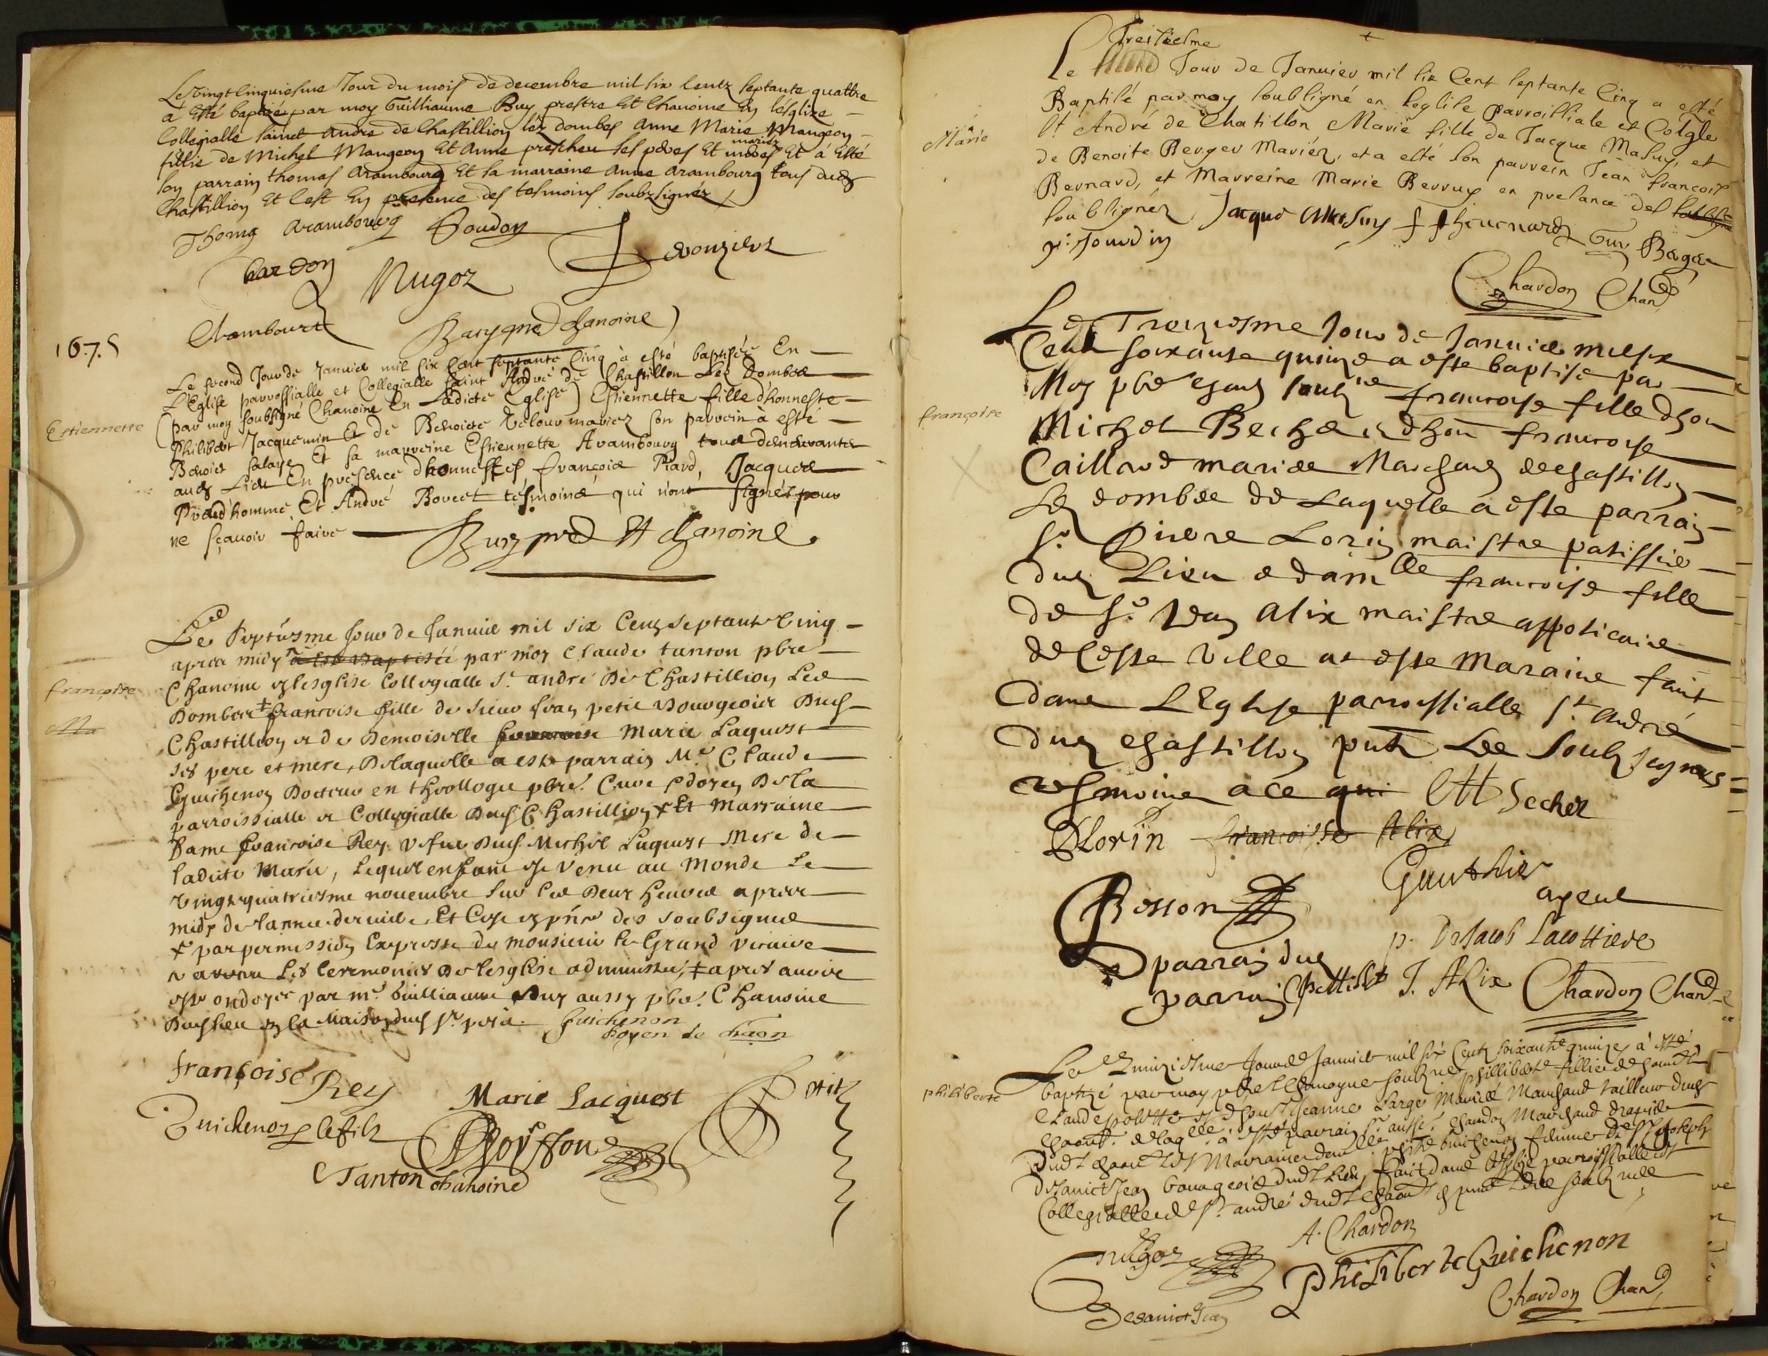 Le vingt cinquiesme Jour du mois de decembre mil six centz septante quattre
a esté baptizé par moy Guilliaume Buy prestre Et Chanoine En lesglize
Collegialle sainct André de Chastillion lez dombes Anne Marie Mangeon
fillie de Michel Mangeon Et Anne prescheu ses peres Et meres mariez Et à Esté
son parrain thomas Arambourg Et sa marraine Anne Arambourg tous dudt
Chastillion Et c'est En presence des tesmoins soubzsignez
Thoma Arambourg Joudon
bardon Nugoz devouziere
Chambourt Buy pred chanoine
1675
Le second Jour de Janvier mil six cent septante cinq à esté baptisée En
L'Eglise parroffialle et Collegialle saint André de Chastillon Les Dombes
(par moy soubsigné Chanoine En Ladicte Eglise) Estiennette fille d'honneste
Estiennette
Philibert Jacquemin Et de Benoiste Velour mariez son parrein à esté
Benoist Salaye Et sa marreine Estiennette Arambourg tous demeurantz
audt Lieu En presence d'honnestes françois Piard, Jacques
Prudhomme Et André Bovect tésmoins qui n'ont signés pour
ne sçavoir faire
Buy pred Et chanoine
Le Septiesme Jour de Janvier mil six Centz septante Cinq
apres midy a esté baptisée par moy Claude tanton pbre
Chanoine en lesglise Collegialle St. andré De Chastillion Les
françoise
Dombes francoise fille de sieur Jean petit Bourgeois Dudt
Chastillion et de Demoiselle francoise Marie Laquest
ses pere et mere, De laquelle a esté parrain Mr. Claude
Guichenon Docteur en theollogie pbre. Curé Et doyen De la
parroissialle et Collegialle Dudt Chastillion Et Marraine
Dame francoise Rey vefve Dudt Michel Laquest Mere de
ladicte Marie, Lequel enfant est venu au Monde Le
vingt quatriesme novembre sur les Deux heures apres
midy de l'année derniere, Et C'est en pnce des soubsignes
par permission Expresse de monsieur le Grand vicaire
Les Ceremonies De lesglise administrées, apres avoir
esté ondoyée par mr. Guilliaume Buy aussy pbre. Chanoine
Dudt lieu en la Maison dudt Sr. petit. Guichenon
Doyen de
françoise Rey
Marie Lacquest Petit
Guichenon le fils Boysson
Tanton chanoine
Treiziesme
Le Jour de Janvier mil six Cent septante Cinq a esté
Baptisé par moy soubsigné en l'eglise parroissiale et Colgle
Marie
St André de Chatillon Marie fille de Jacque Masuy, et
de Benoite Berger Mariez, et a esté son parrein Jean françois
Bernard, et Marreine Marie Berruy en presance des
soubsignez Jacque Masuy Bernard Guy Bergé
p. Jourdin
Chardon Chane
Le Treiziesme Jour de Janvier mil six
Cent soixante quinze a esté baptisé par
Moy pbre chane francoise fille dhon
françoise
Michel Beche et dhon francoise
Caillard mariés Marchand de chastillon
Les dombes de Laquelle a este parrain
Sr. Pierre Lorin maistre patissier
dud Lieu et damlle francoise fille
de Sr. Jean Alix maistre appoticaire
de Ceste Ville at este Maraine faict
dans L'Eglise parroissialle St. André
dud chastillon pntz Les Soubz signes
tesmoins a ce qui Secher
PLorin francoisse Alix
Gauthier
Besson ayeul
parrain dud p. DeJacob Lacottiere
parrain Pettibt J. Alix Chardon Chane
Le quinziesme Jour de Janvier mil six Centz soixante quinze, à esté
baptizé par moy pbre Et Chanoyne soubzné, phillibert fillie de honnt
philiberte
Claude polotte et dhonte Jeanne Large Mariés Marchand tailleur dudt
Chaont de laqlle à esté parrain Sr. aussi Chardon Marchand drapier
dudt chaont Et Marraine damlle phte Guichenon femme de Sr Joseph
desainct Jean bourgeois dudt Lieu, fait dans L'Esglize parroissialle et
Collegialle de St. andre dudt chaont en pnce des soubznez
A. Chardon
nugoz Philiberte Guichenon
Desainct Jean Chardon Chane